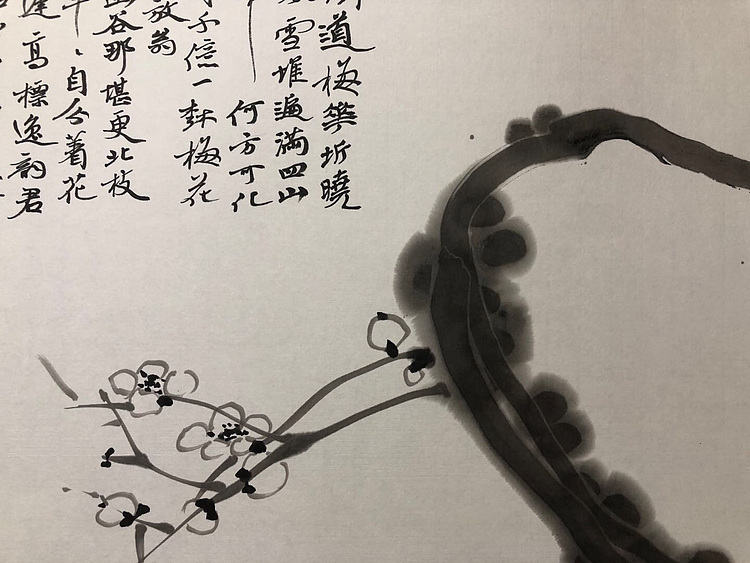 道梅華坼曉
雪堆遍滿四山
何方可化
千億一樹梅花
放翁
谷那堪更北枝
年、自分着花
高標逸韵君